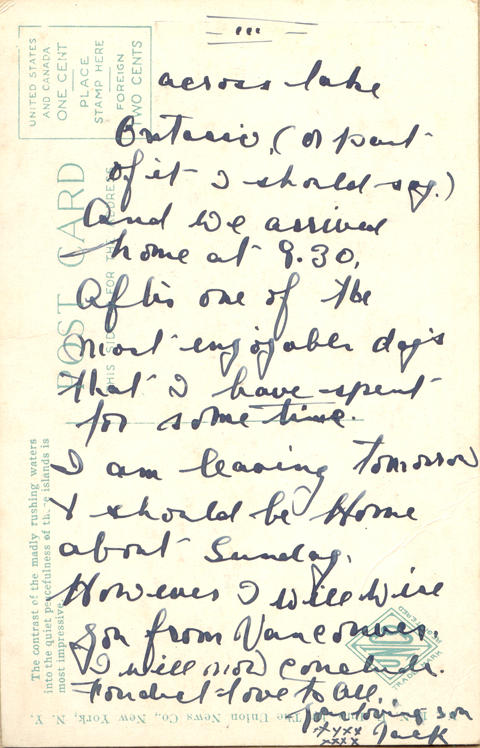 "'"
across lake
Ontario, (or part
of it I should say.)
And we arrived
home at 9.30,
After one of the
most enjoyable days
that I have spent
for some time.
I am leaving tomorrow
& should be Home
about Sunday.
However I will wire
you from Vancouver.
I will now conclude.
Fondest love to all.
Your loving son
Jack
xxxx
xxxx
UNITED STATES
AND CANADA
ONE CENT
PLACE
STAMP HERE
FOREIGN
TWO CENTS
POST CARD
THIS SIDE FOR THE ADDRESS
The contrast of the madly rushing waters
into the quiet peacefulness of these islands is
most impressive.
The Union News Co., New York, N. Y.
UNION
REGISTERED
TRADE MARK